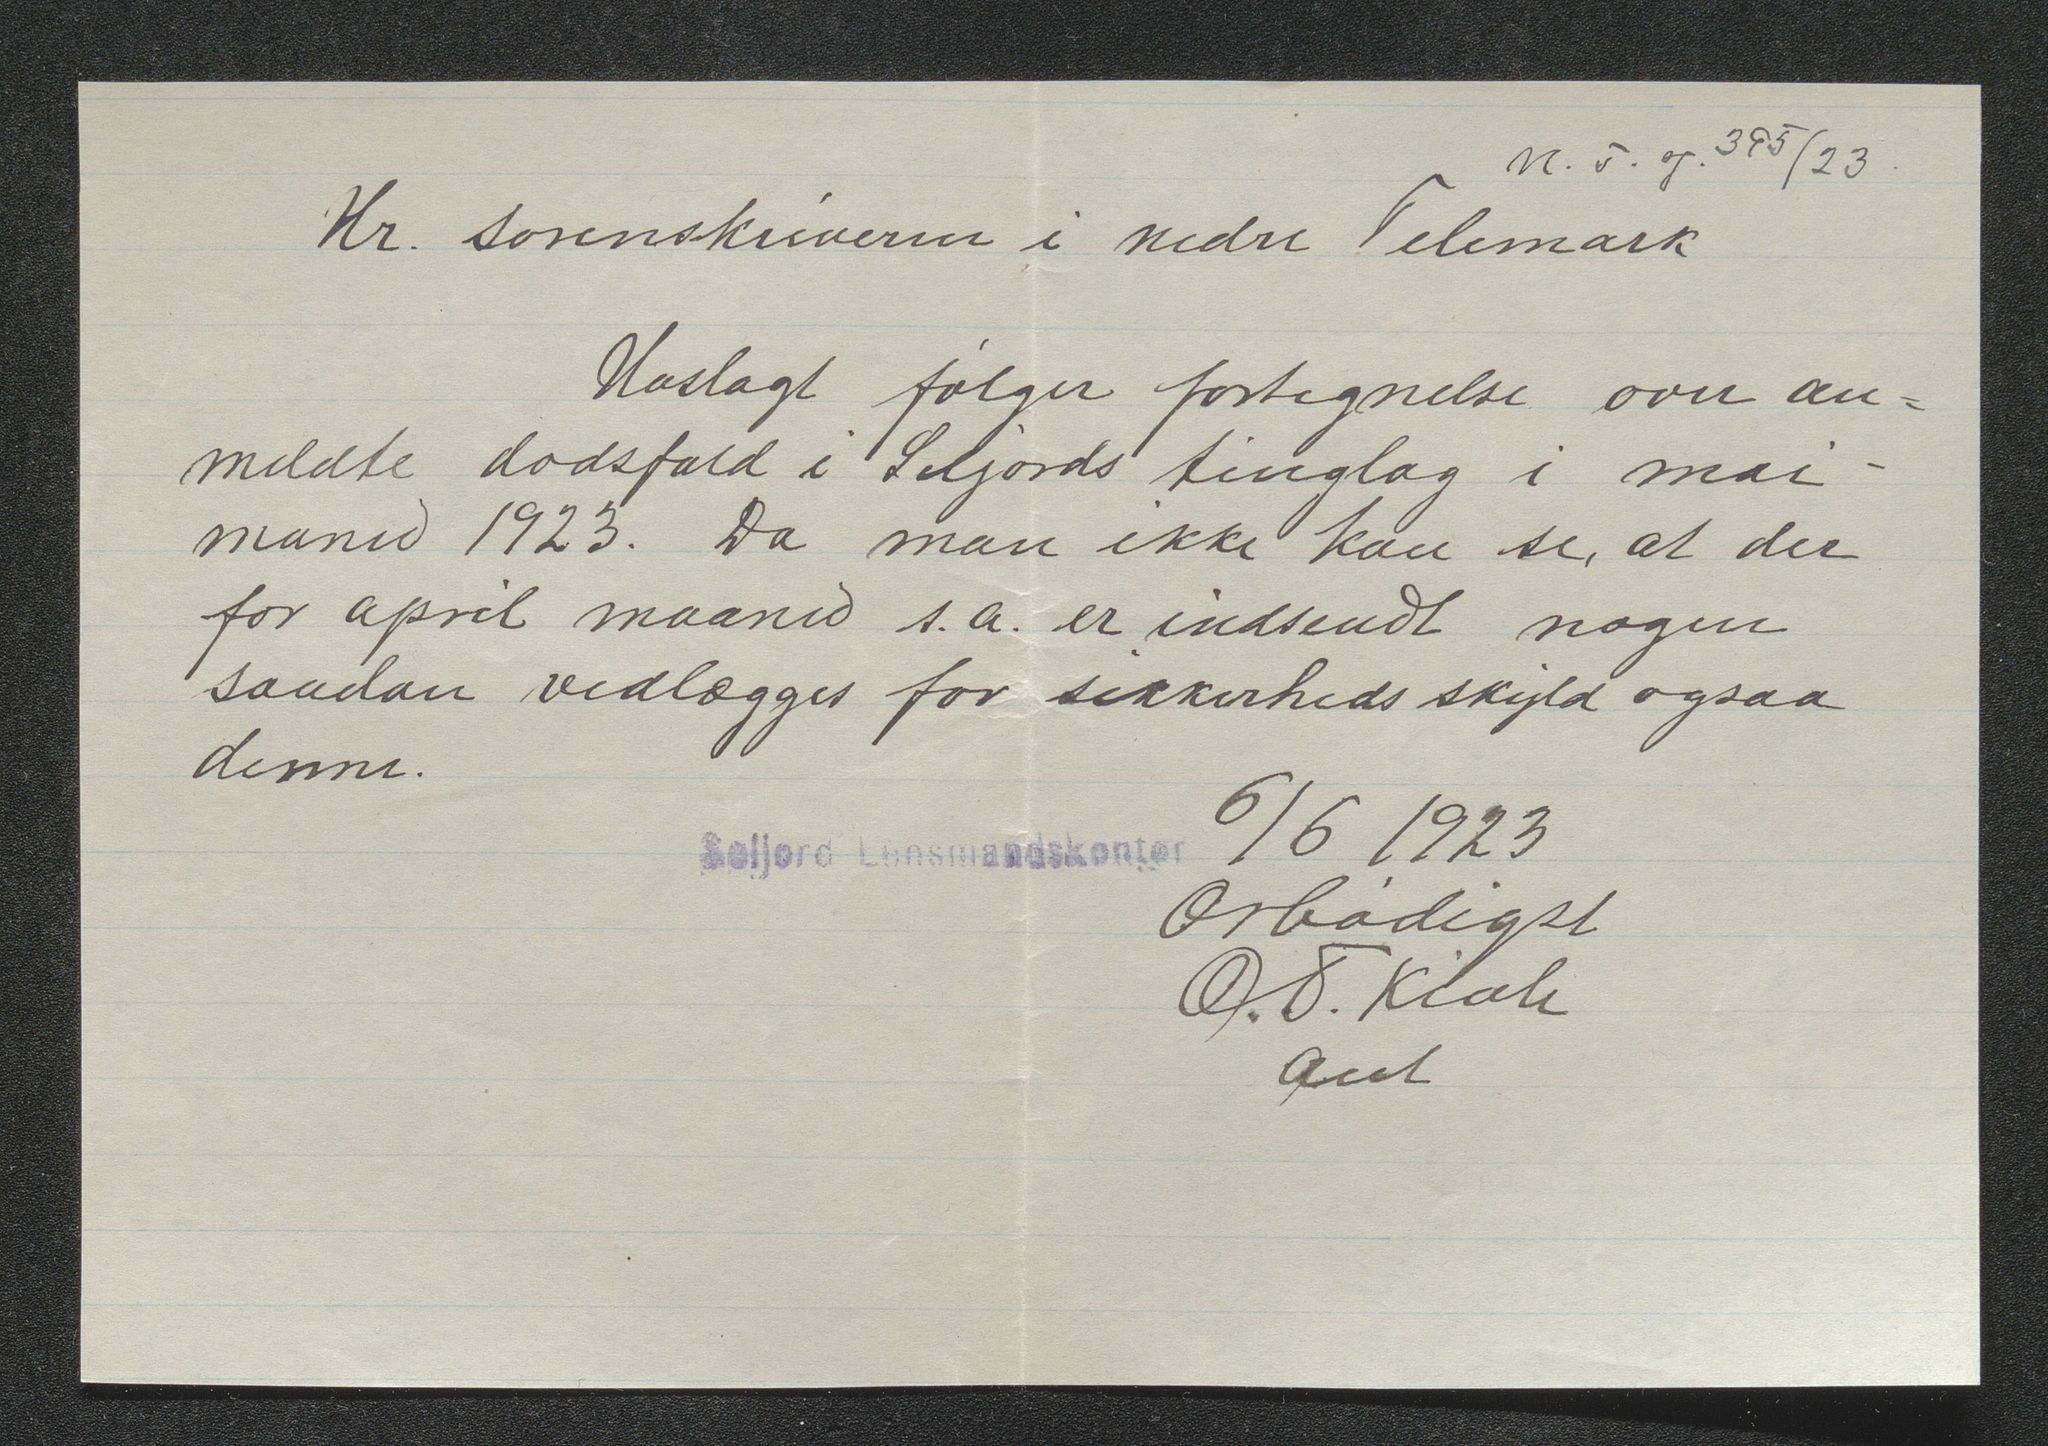 N. T. J. 395/23.
Hr. sorenskriveren i nedre Telemark
Hoslagt følger fortegnelse over an=
meldte dødsfald i Seljords tinglag i mai-
maned 1923. Da man ikke kan se, at der
for april maaned s.a. er indsendt nogen
saadan vedlægges for sikkerheds skyld ogsaa
denne.
Seljord Lensmandskontor
6/6 1923
Ærbødigst
O. T.
aut